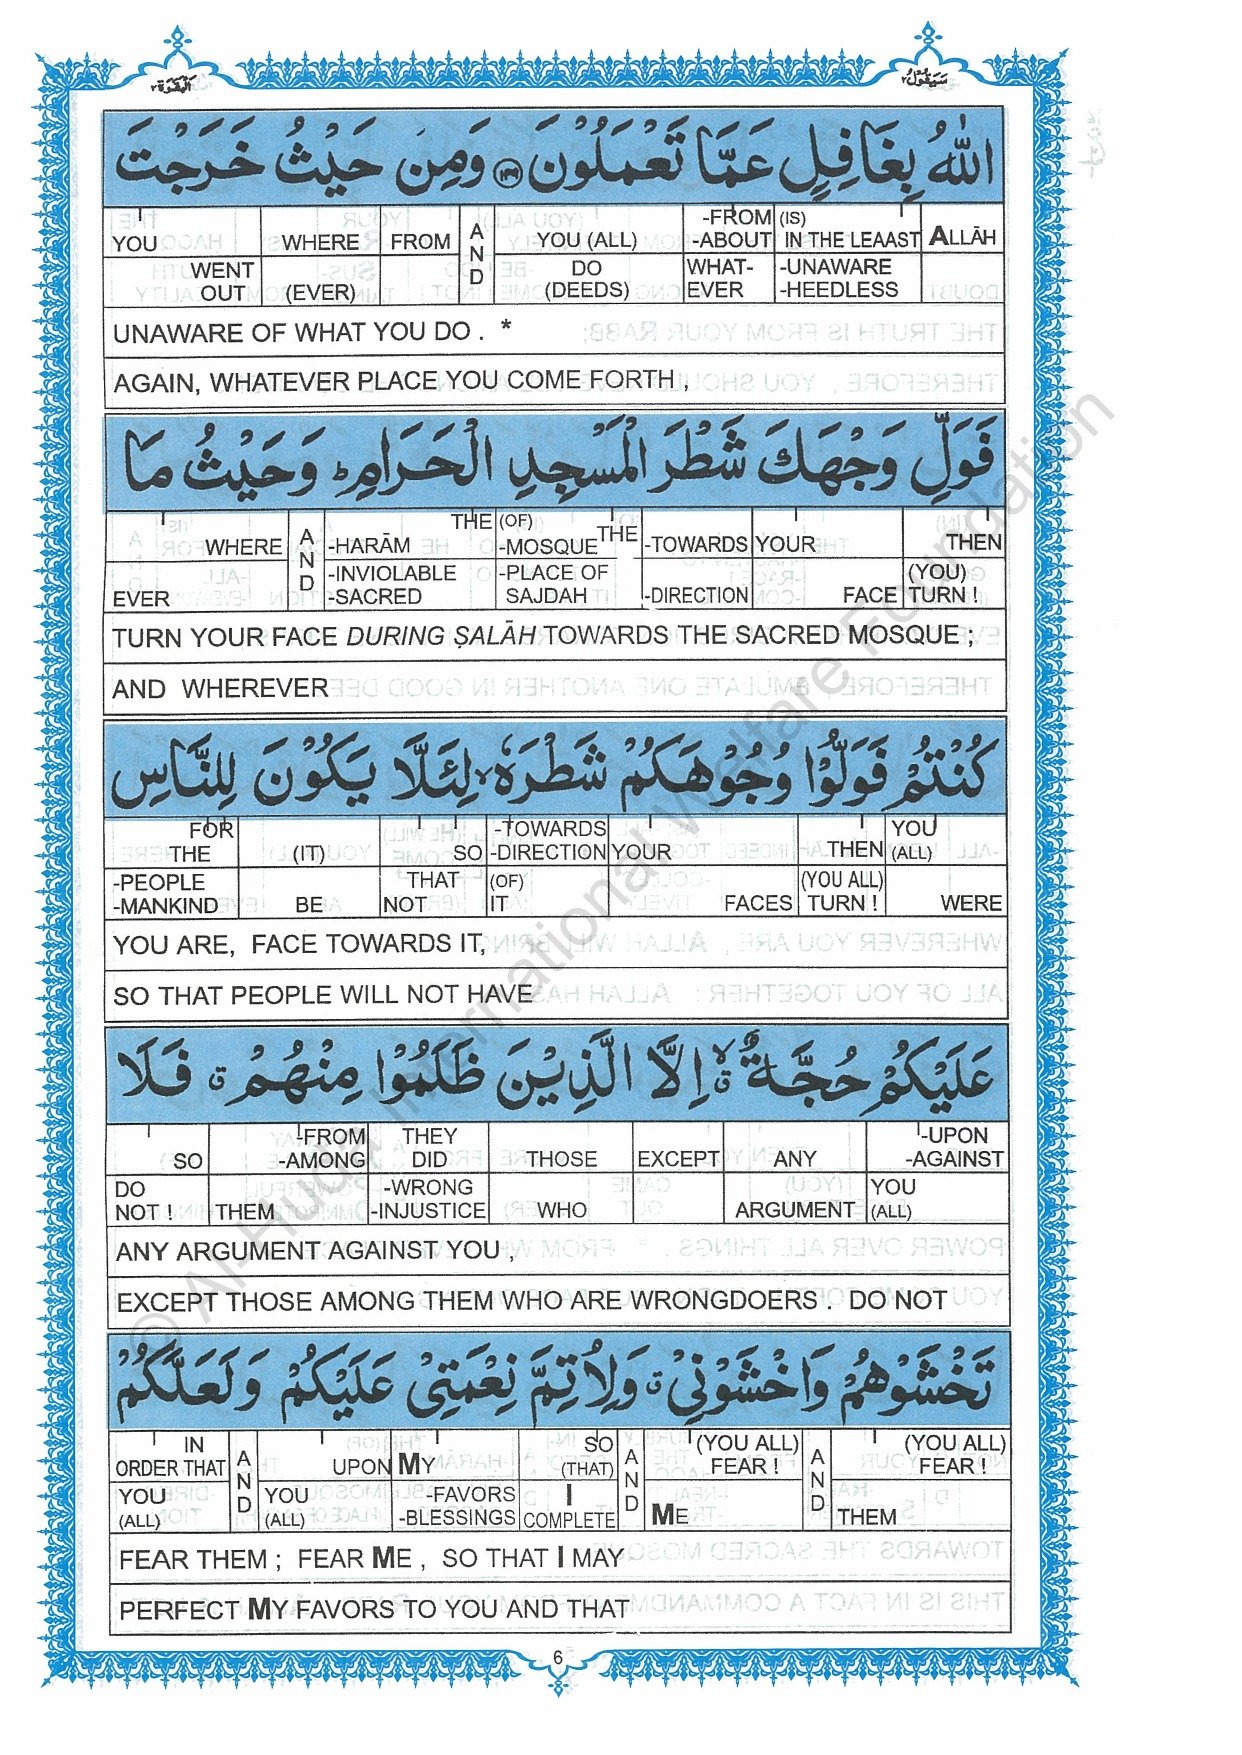 البقرة ٢
سيقول ٢
اللّٰهُ بِغَافِلٍ عَمَّا تَعْمَلُوْنَ ﴿١٤٩﴾ وَمِنْ حَيْثُ خَرَجْتَ
YOU WHERE FROM AND YOU (ALL) -FROM -ABOUT (IS) IN THE LEAAST ALLĀH
WENT OUT (EVER) DO (DEEDS) WHAT-EVER -UNAWARE -HEEDLESS
UNAWARE OF WHAT YOU DO . *
AGAIN, WHATEVER PLACE YOU COME FORTH ,
فَوَلِّ وَجْهَكَ شَطْرَ الْمَسْجِدِ الْحَرَامِ ؕ وَحَيْثُ مَا
WHERE AND THE -HARĀM (OF) -MOSQUE THE -TOWARDS YOUR THEN
EVER -INVIOLABLE -SACRED -PLACE OF SAJDAH -DIRECTION FACE (YOU) TURN !
TURN YOUR FACE DURING ṢALĀH TOWARDS THE SACRED MOSQUE ;
AND WHEREVER
كُنْتُمْ فَوَلُّوْا وُجُوْهَكُمْ شَطْرَهٗ ۙ لِئَلَّا يَكُوْنَ لِلنَّاسِ
FOR THE (IT) SO -TOWARDS -DIRECTION YOUR THEN YOU (ALL)
-PEOPLE -MANKIND BE THAT NOT (OF) IT FACES (YOU ALL) TURN ! WERE
YOU ARE, FACE TOWARDS IT,
SO THAT PEOPLE WILL NOT HAVE
عَلَيْكُمْ حُجَّةٌ ۙۗ اِلَّا الَّذِيْنَ ظَلَمُوْا مِنْهُمْ ۗ فَلَا
SO -FROM -AMONG THEY DID THOSE EXCEPT ANY -UPON -AGAINST
DO NOT ! THEM -WRONG -INJUSTICE WHO ARGUMENT YOU (ALL)
ANY ARGUMENT AGAINST YOU ,
EXCEPT THOSE AMONG THEM WHO ARE WRONGDOERS . DO NOT
تَخْشَوْهُمْ وَاخْشَوْنِيْ ۗ وَلِاُتِمَّ نِعْمَتِيْ عَلَيْكُمْ وَلَعَلَّكُمْ
IN ORDER THAT AND UPON MY SO (THAT) AND (YOU ALL) FEAR ! AND (YOU ALL) FEAR !
YOU (ALL) YOU (ALL) -FAVORS -BLESSINGS I COMPLETE ME THEM
FEAR THEM ; FEAR ME , SO THAT I MAY
PERFECT MY FAVORS TO YOU AND THAT
6
© Al-Huda International Welfare Foundation